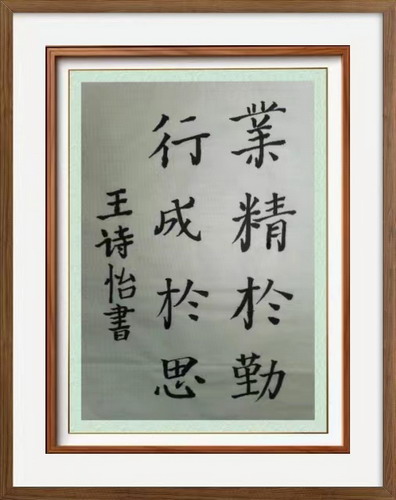 業精於勤
行成於思
王诗怡書